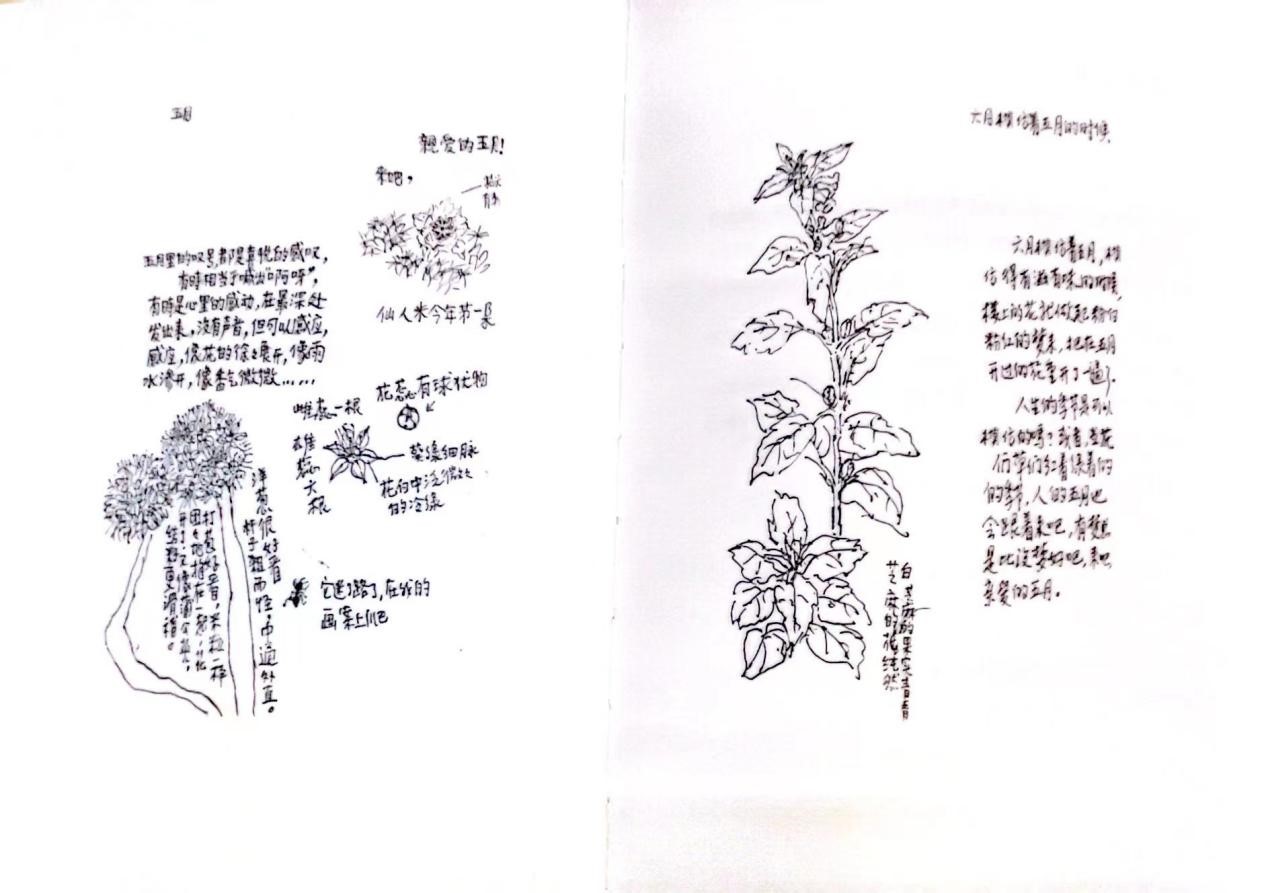 五月
親爱的五月!
来吧,
五月里的叹号都是真悦的感叹,
有時相当于喊出“啊呀”,
有時是心里的感动,在最深处
发出来,没有声音,但可以感应,
感应,像花的徐徐展开,像雨
水渗开,像香气微微……
仙人米今年第一朵
花蕊有球状物
雌蕊一根
雄蕊六根
葵绿细脉
花白中泛微微
的冷绿
洋葱很好看
杆子粗而怪,中通外直。
打苞好看,米粒一样
团团地拥在一起,花
开了又像蒲公英,
它迷了路了,在我的
画案上爬
六月模仿着五月的时候
六月模仿着五月,模
仿得有滋有味的時候,
樓上的花就做起粉白
粉红的梦来,把在五月
开过的花重开了一遍了.
人生的季节是可以
模仿的嗎?或者,是花
们草们红着绿着的
的季节,人的五月也
会跟着来吧,有梦总
是比没梦好吧,来吧
亲爱的五月。
白芝麻的果实青青
芝麻的花纯然